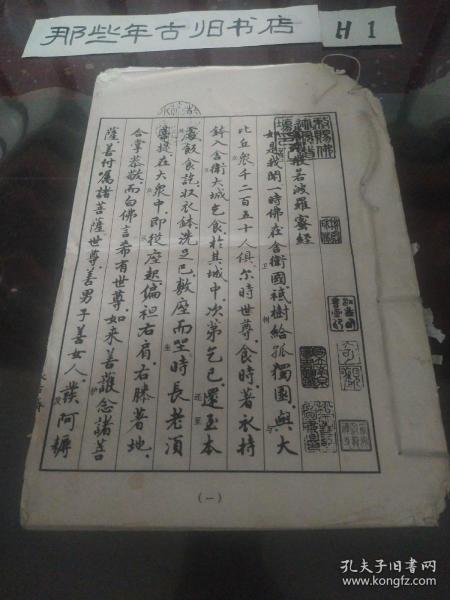 那些年古旧书店 H 1
般若波羅蜜經
如是我聞一時佛在舍衛國祇樹給孤獨園、與大
比丘衆千二百五十人俱、尔時世尊、食時、著衣持
鉢、入舍衛大城乞食、於其城中、次第乞已、還至本
處、飯食訖、収衣鉢、洗足已、敷座而坐、時長老須
菩提、在大衆中、即從座起、偏袒右肩、右膝著地、
合掌恭敬、而白佛言、希有世尊、如来善護念諸菩
薩、善付囑諸菩薩、世尊、善男子善女人、發阿耨
(一)
孔夫子旧书网
www.kongfz.com